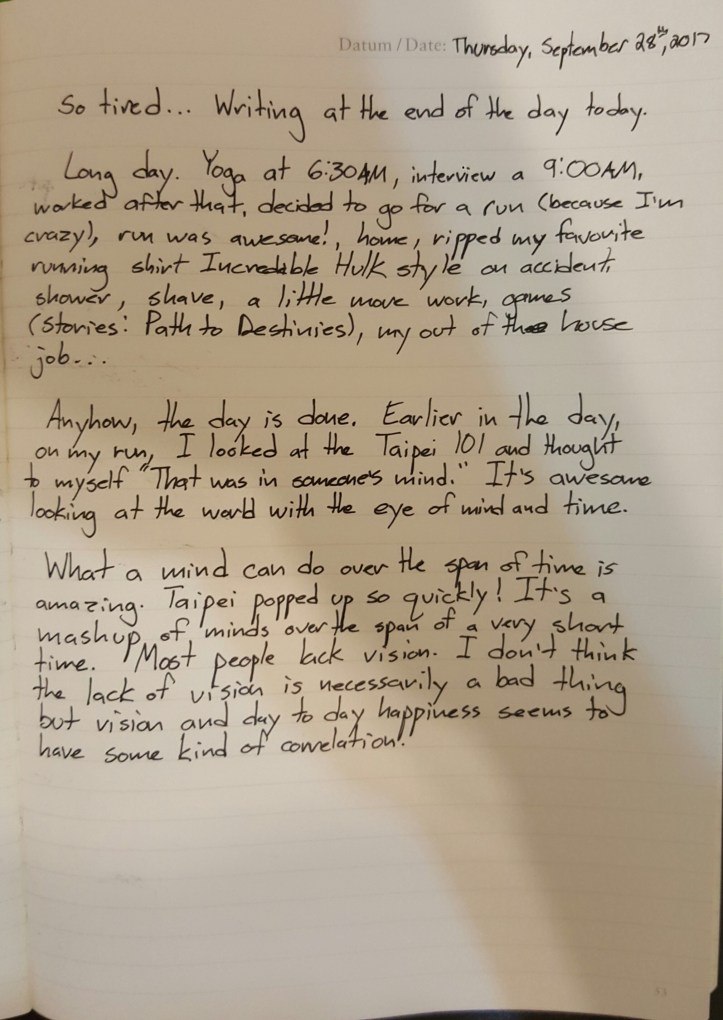 Datum / Date: Thursday, September 28th, 2017
So tired... Writing at the end of the day today.
Long day. Yoga at 6:30AM, interview a 9:00AM,
worked after that, decided to go for a run (because I'm
crazy), run was awesome!, home, ripped my favorite
running shirt Incredible Hulk style on accident,
shower, shave, a little more work, games
(Stories: Path to Destinies), my out of the house
job...
Anyhow, the day is done. Earlier in the day,
on my run, I looked at the Taipei 101 and thought
to myself "That was in someone's mind." It's awesome
looking at the world with the eye of mind and time.
What a mind can do over the span of time is
amazing. Taipei popped up so quickly! It's a
mashup of minds over the span of a very short
time. Most people lack vision. I don't think
the lack of vision is necessarily a bad thing
but vision and day to day happiness seems to
have some kind of correlation.
51